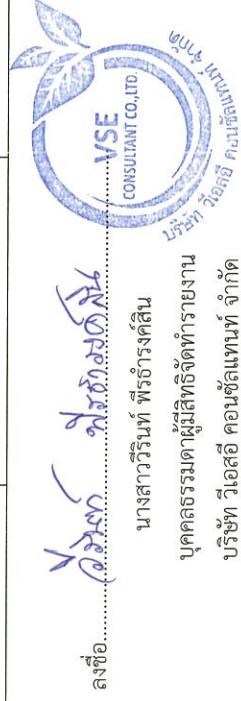 ลงชื่อ.......... วีรินท์ พีรธำรงค์สิน ..........
นางสาววีรินท์ พีรธำรงค์สิน
บุคคลธรรมดาผู้มีสิทธิจัดทำรายงาน
บริษัท วีเอสอี คอนซัลแทนท์ จำกัด
VSE
CONSULTANT CO.,LTD.
บริษัท วีเอสอี คอนซัลแทนท์ จำกัด